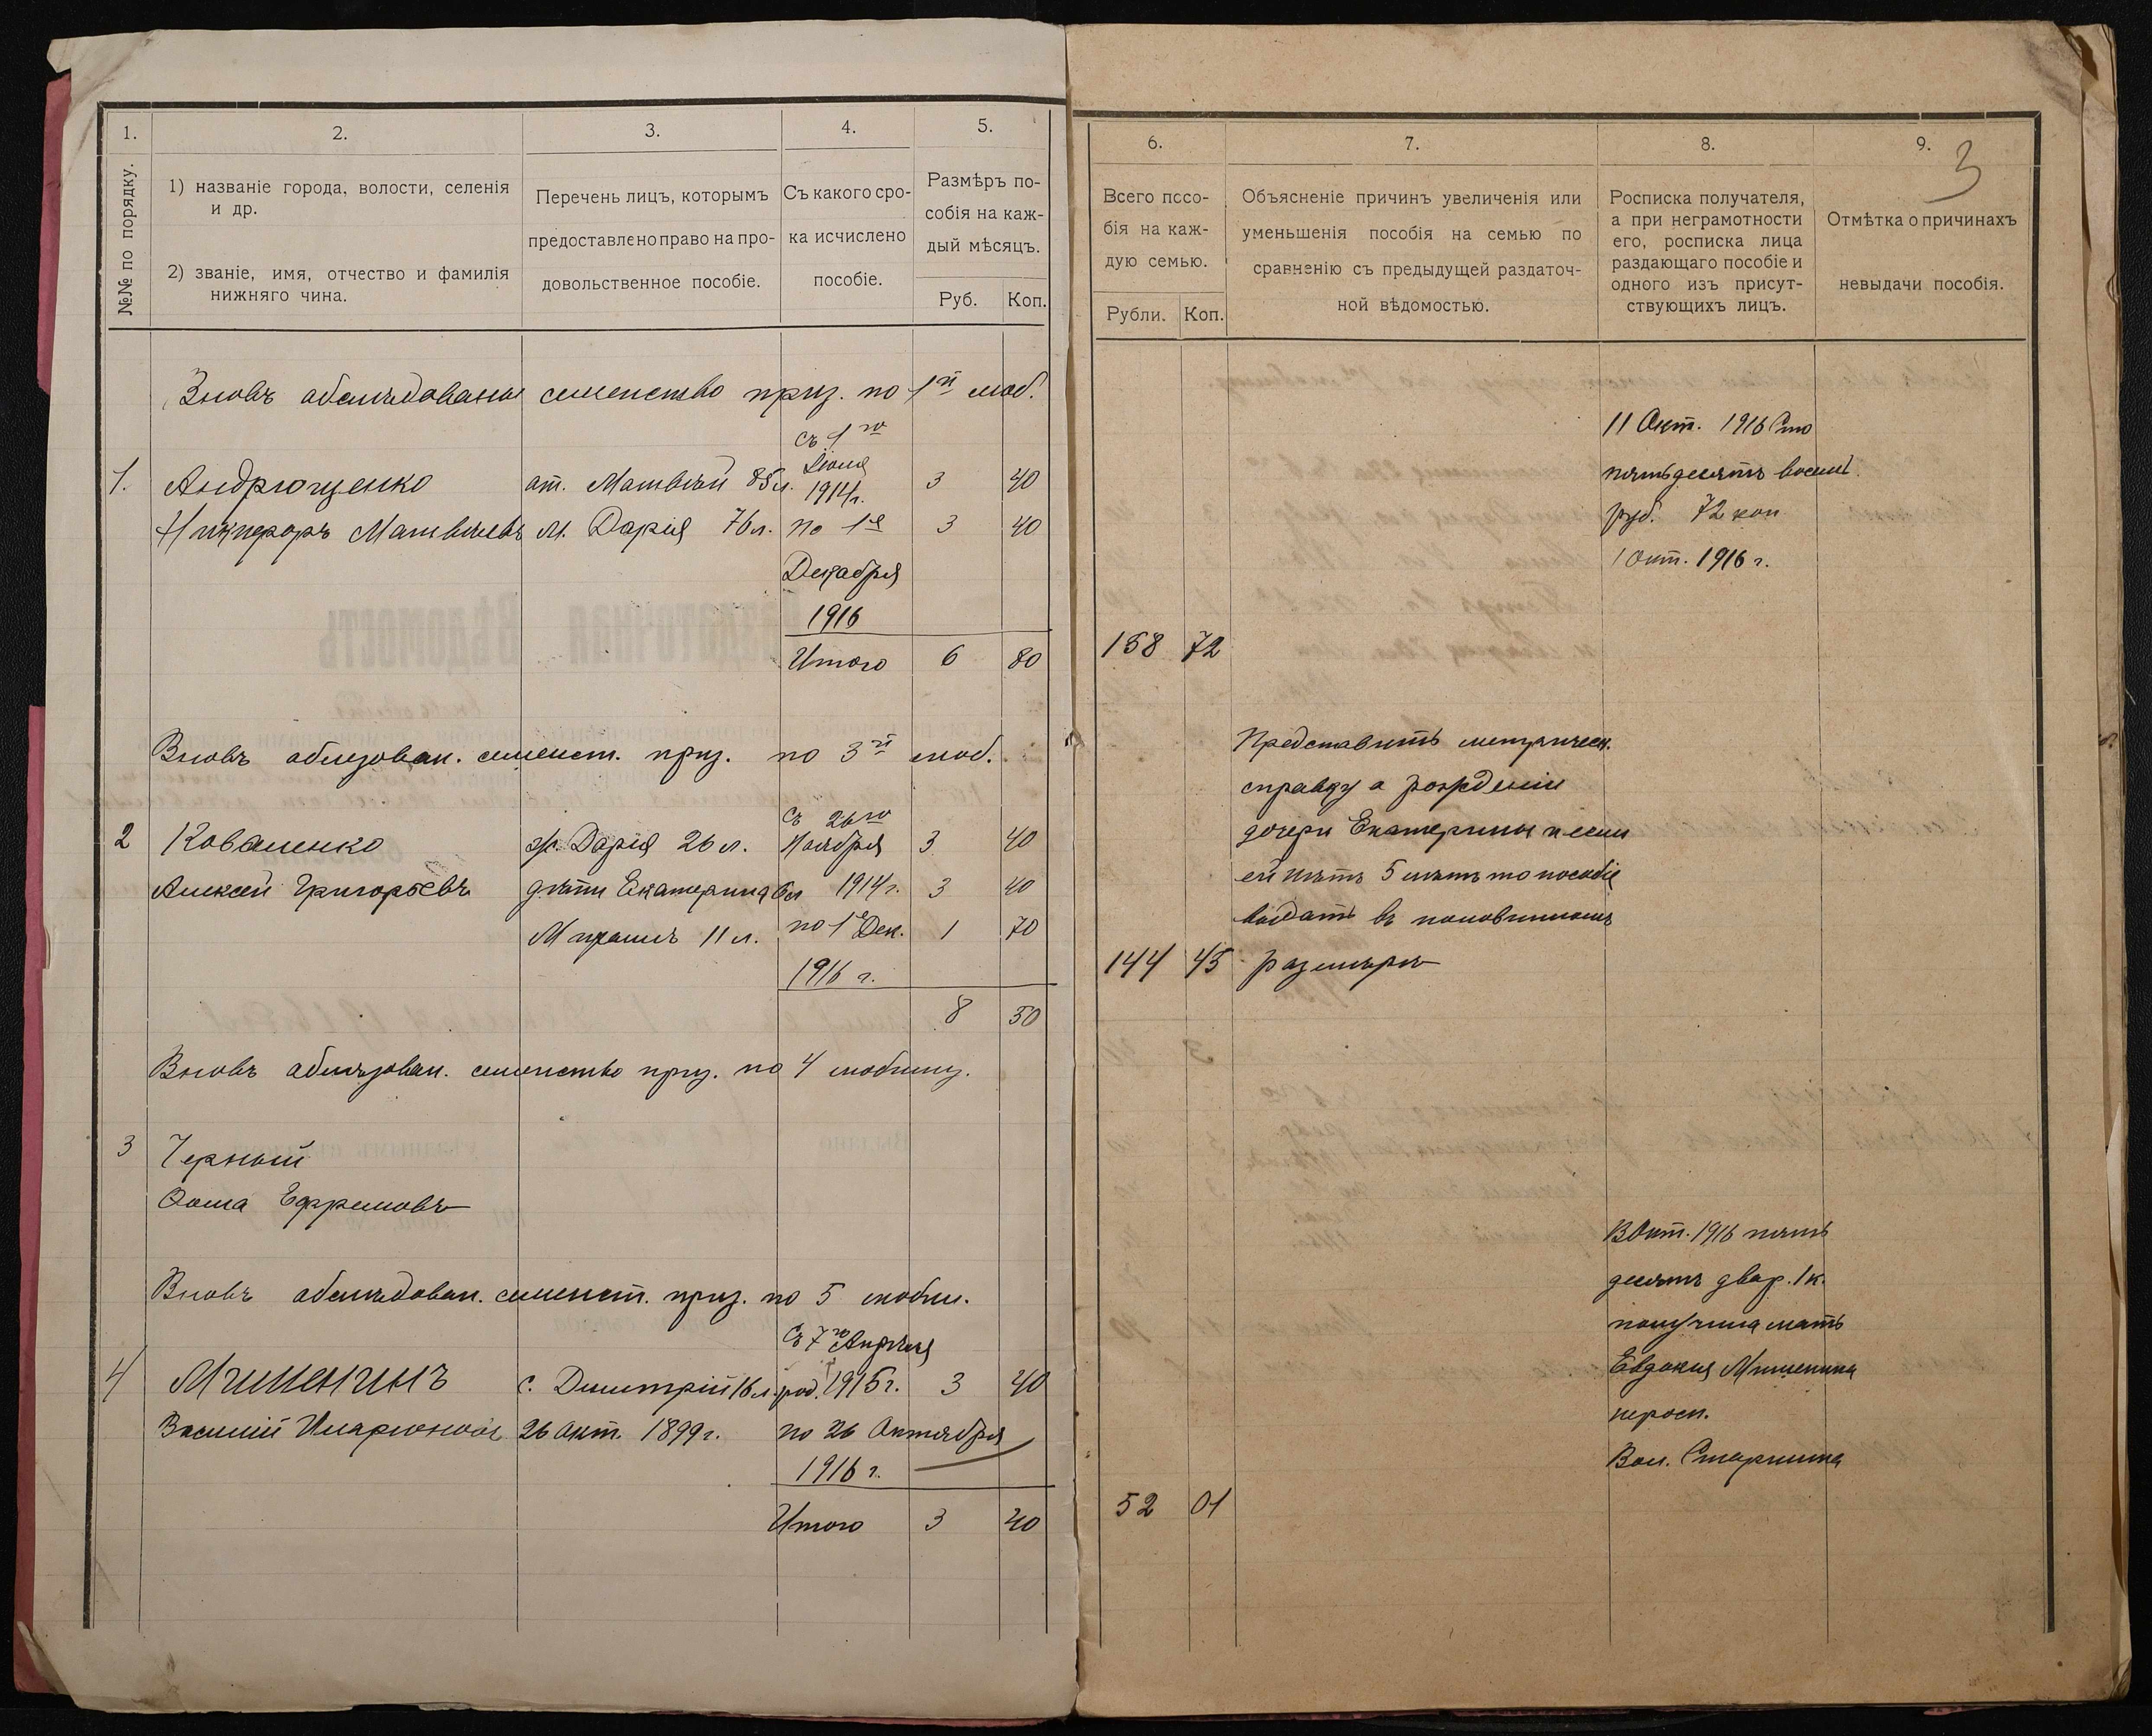 1.
2.
3.
4.
5.
№№ по порядку.
1) названіе города, волости, селенія
и др.
2) званіе, имя, отчество и фамилія
нижняго чина.
Перечень лицъ, которымъ
предоставлено право на про-
довольственное пособіе.
Съ какого сро-
ка исчислено
пособіе.
Размѣръ по-
собія на каж-
дый мѣсяцъ.
Руб.
Коп.
Вновь обслѣдованы семейство приз. по 1й моб.
съ 1го
1. Андрющенко от. Матвѣй 85 л. 1914 г. 3 40
Никифоръ Матвѣевъ м. Дарія 76 л. по 1е 3 40
Декабря
1916
Итого 6 80
Вновь семейст. приз. по 3й моб.
съ 26го
2 Коваленко ж. Дарія 26 л. Ноября 3 40
Алексѣй Григорьевъ дѣти Екатерина 6 л 1914 г. 3 40
11 л. по 1е Дек. 1 70
1916 г.
8 50
Вновь семейство приз. по 4 мобилиз.
3 Черный
Фома Ефремовъ
Вновь обслѣдован. семейст. приз. по 5 мобил.
съ 7го Апрѣля
4 Мишенинъ с. Дмитрій 16 л. род. 1915 г. 3 40
Василій Иларіоновъ 26 Окт. 1899 г. по 26 Октября
1916 г.
Итого 3 40
6.
7.
8.
9.
3
Всего посо-
бія на каж-
дую семью.
Рубли.
Коп.
Объясненіе причинъ увеличенія или
уменьшенія пособія на семью по
сравненію съ предыдущей раздаточ-
ной вѣдомостью.
Росписка получателя,
а при неграмотности
его, росписка лица
раздающаго пособіе и
одного изъ присут-
ствующихъ лицъ.
Отмѣтка о причинахъ
невыдачи пособія.
11 Окт. 1916 Сто
пятьдесятъ восемь
руб. 72 коп
1 Окт. 1916 г.
158 72
Представить метрическ.
справку о рожденіи
дочери Екатерины и если
ей нѣтъ 5 лѣтъ то пособіе
выдать въ половинномъ
144 45 размѣрѣ
Окт. 1916 пять
десятъ два р. 1 к.
получила мать
Евдокія Мишенина
Вол. Старшина
52 01